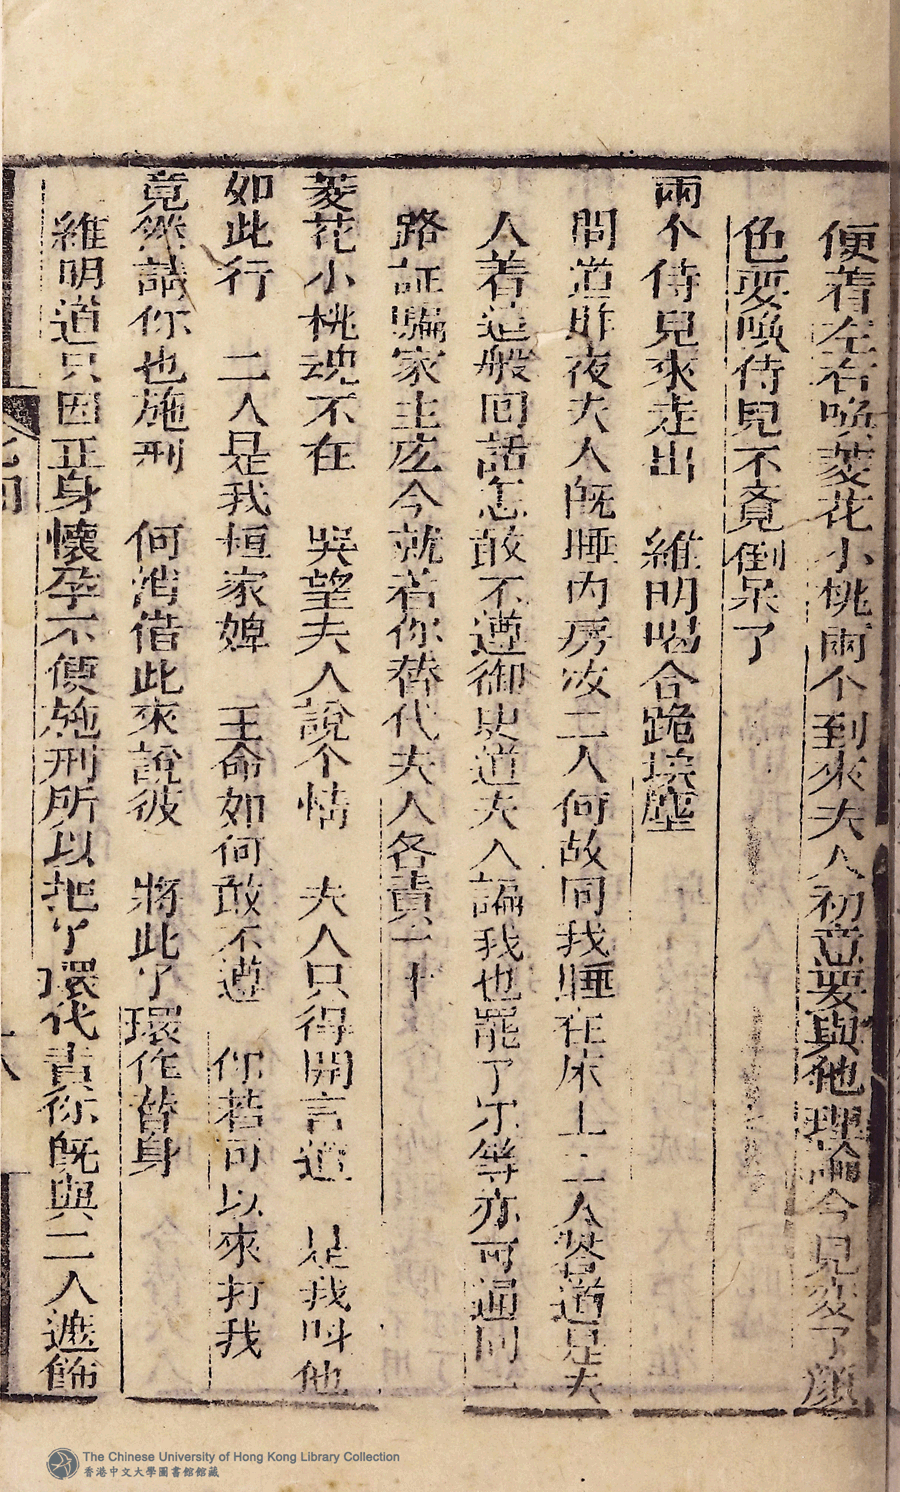 便着左右喚菱花小桃兩个到來夫人初意要與他理論今見変了顔
色要喚侍兒不竟倒呆了
兩个侍兒來走出　維明喝合跪埃塵
問道昨夜夫人既睡內房汝二人何故同我睡在床上二人答道是夫
人着這般回話怎敢不遵御史道夫人諞我也罷了尔等亦可通同一
路証騙家主庅今就着你替代夫人各責二十
菱花小桃魂不在　吳望夫人說个情　夫人只得開言道　是我呌他
如此行　二人是我桓家婢　王命如何敢不遵　你若可以來打我
竟然請你也施刑　何消借此來說彼　將此了環作替身
維明道只因正身懷孕不便施刑所以把了環代責你既與二人遮飾
The Chinese University of Hong Kong Library Collection
香港中文大學圖書館館藏